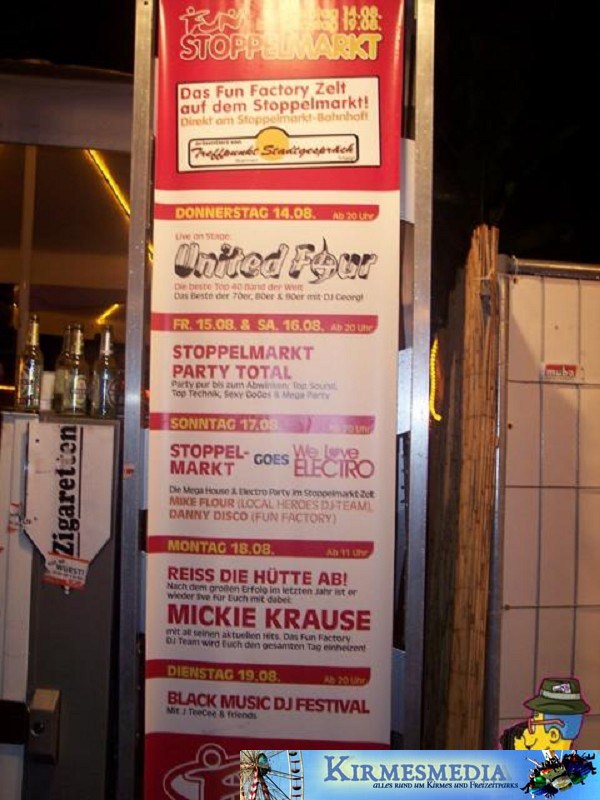 FUN
14.08.
19.08.
STOPPELMARKT
Das Fun Factory Zelt
auf dem Stoppelmarkt!
Direkt am Stoppelmarkt-Bahnhof!
Treffpunkt Stadtgespräch
DONNERSTAG 14.08. Ab 20 Uhr
Live on Stage:
United Four
Die beste Top 40 Band der Welt
Das Beste der 70er, 80er & 90er mit DJ Georg!
FR. 15.08. & SA. 16.08. Ab 20 Uhr
STOPPELMARKT
PARTY TOTAL
Party pur bis zum Abwinken: Top Sound,
Top Technik, Sexy GoGos & Mega Party
SONNTAG 17.08. Ab 20 Uhr
STOPPEL-
MARKT GOES We Love
ELECTRO
Die Mega House & Electro Party im Stoppelmarkt-Zelt
MIKE FLOUR (LOCAL HEROES DJ-TEAM),
DANNY DISCO (FUN FACTORY)
MONTAG 18.08. Ab 11 Uhr
REISS DIE HÜTTE AB!
Nach dem großen Erfolg im letzten Jahr ist er
wieder live für Euch mit dabei:
MICKIE KRAUSE
mit all seinen aktuellen Hits. Das Fun Factory
DJ Team wird Euch den gesamten Tag einheizen!
DIENSTAG 19.08. Ab 20 Uhr
BLACK MUSIC DJ FESTIVAL
Mit J-TeeCee & Friends
Zigaretten
WURST!
muba
KIRMESMEDIA
ALLES RUND UM KIRMES UND FREIZEITPARKS